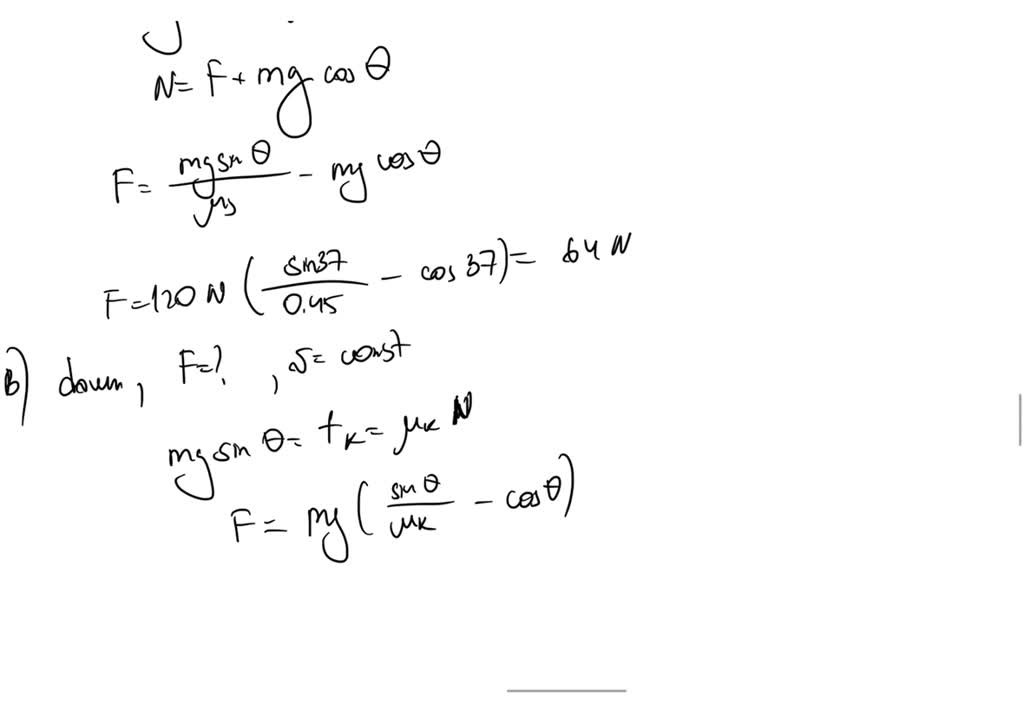 N = F + mg cos θ
F = mg sin θ / μs - mg cos θ
F = 120 N ( sin 37 / 0.45 - cos 37 ) = 64 N
B) down, F = ?, v = const
mg sin θ = fk = μk N
F = mg ( sin θ / μk - cos θ )